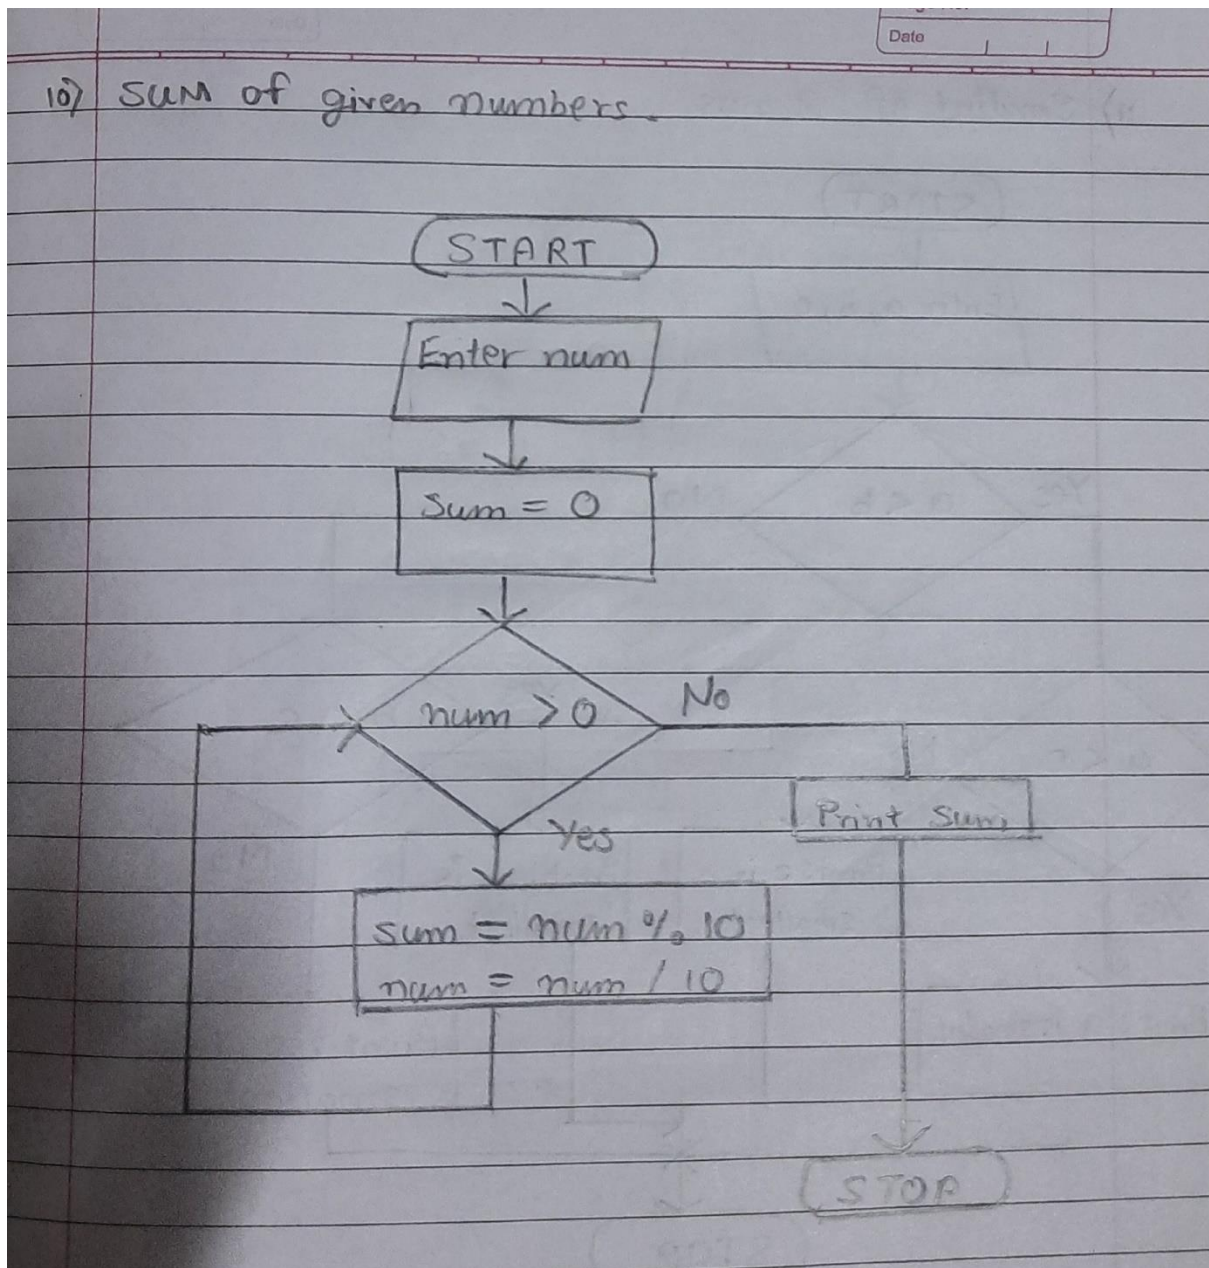 Date
10) SUM of given numbers.
START
Enter num
Sum = 0
num > 0
No
Yes
Print Sum
sum = num % 10
num = num / 10
STOP